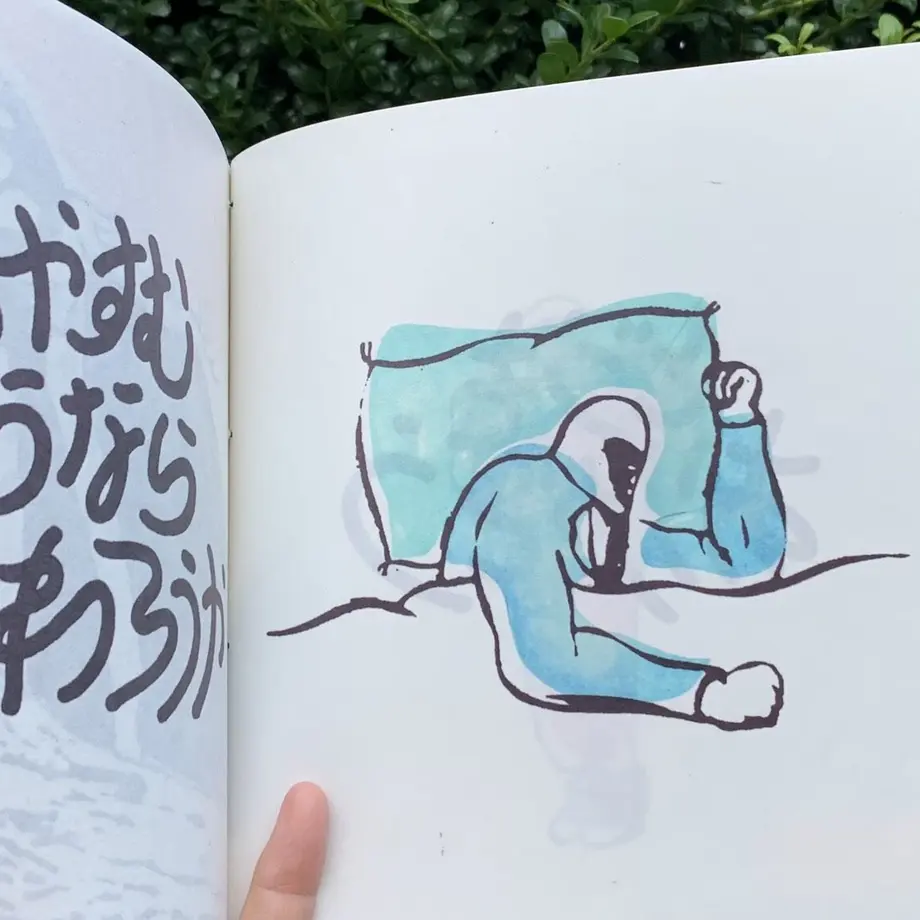 やすむ
うなら
わろうか